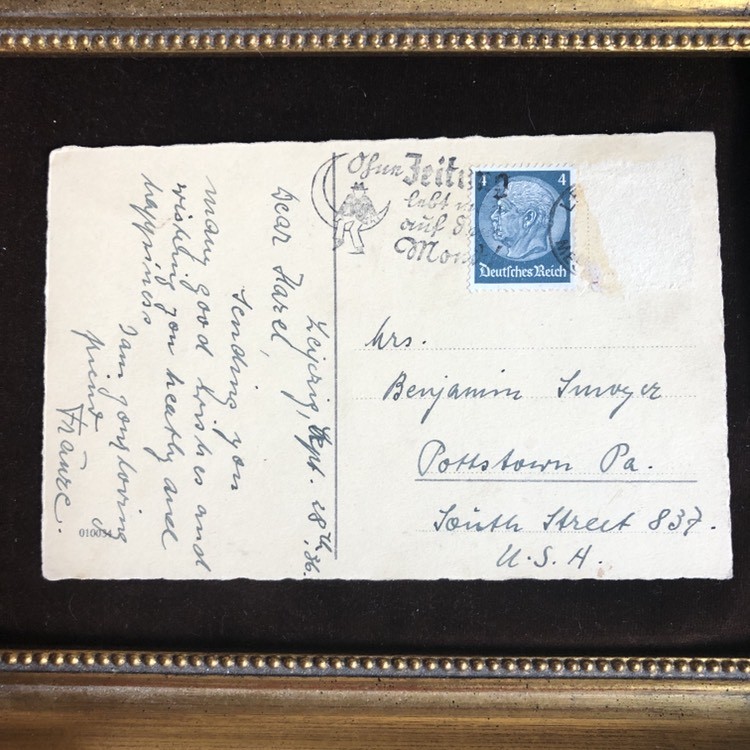 Leipzig, Sept. 28th, 36.
Dear Hazel,
sending you
many good wishes and
wishing you health and
happiness
I am your loving
friend
010034
Ohne Zeitu
lebt
auf d
Mon
4 4
Deutsches Reich
Mrs.
Benjamin Smoyer
Pottstown Pa.
South Street 837.
U.S.A.